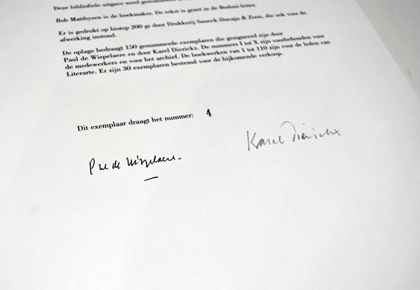 Deze bibliofiele uitgave werd
Bob Matthysen is de boekmaker. De tekst is gezet in de Bodoni-letter.
Er is gedrukt op biotop 200 gr door Drukkerij Smeeck-Ducaju & Zoon, die ook voor de
afwerking instond.
De oplage bedraagt 150 genummerde exemplaren die gesigneerd zijn door
Paul de Wispelaere en door Karel Dierickx. De nummers I tot X zijn voorbehouden voor
de medewerkers en voor het archief. De boekwerken van 1 tot 110 zijn voor de leden van
Literarte. Er zijn 30 exemplaren bestemd voor de bijkomende verkoop.
Dit exemplaar draagt het nummer: 4
Paul de Wispelaere.
Karel Dierickx